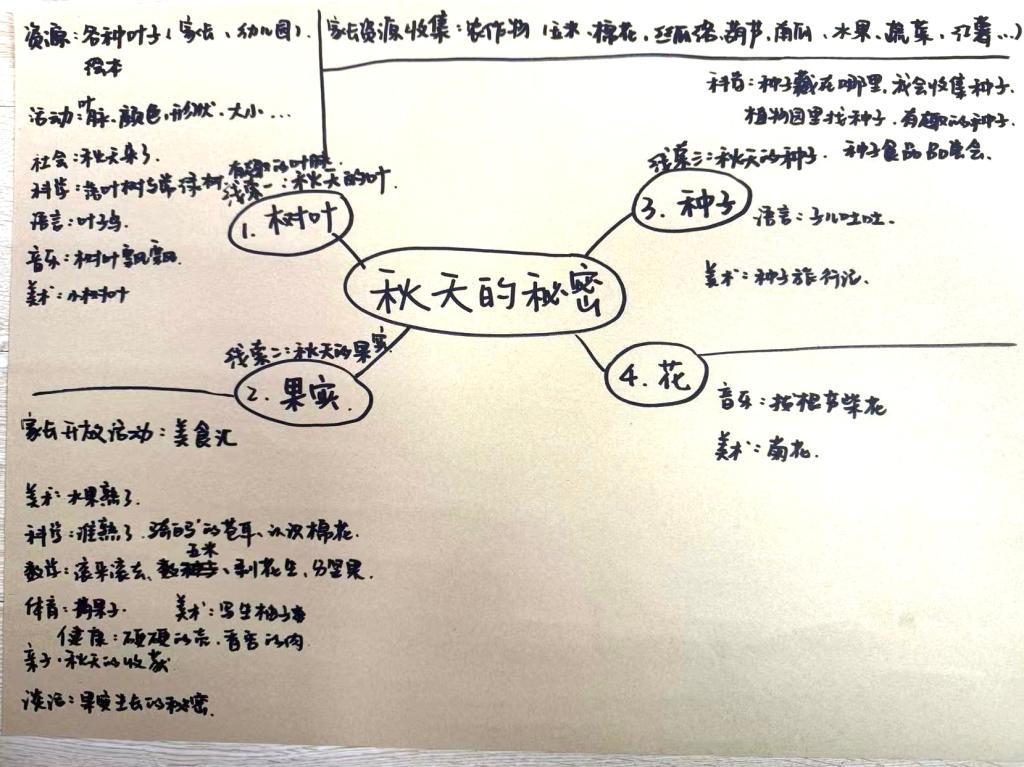 资源：各种叶子（家长、幼儿园）.
绘本
活动：叶脉、颜色、形状、大小...
社会：秋天来了.
科学：落叶树与常绿树、有趣的叶脉.
语言：叶子鸟.
音乐：树叶飘飘.
美术：小树叶
线索一：秋天的叶.
1. 树叶
家长资源收集：农作物（玉米、棉花、丝瓜络、葫芦、南瓜、水果、蔬菜、红薯...）
科学：种子藏在哪里，我会收集种子.
植物园里找种子. 有趣的种子.
种子食品品尝会.
线索三：秋天的种子.
3. 种子
语言：子儿吐吐.
美术：种子旅行记.
秋天的秘密
线索二：秋天的果实.
2. 果实.
家长开放活动：美食汇
美术：水果熟了.
科学：谁熟了、骑马的苍耳、认识棉花.
数学：滚来滚去、玉米、剥花生、分坚果.
体育：摘果子. 美术：写生柚子
健康：硬硬的壳、香香的肉
亲子·秋天的收获
谈话：果实生长的秘密.
4. 花
音乐：拔根芦柴花
美术：菊花.